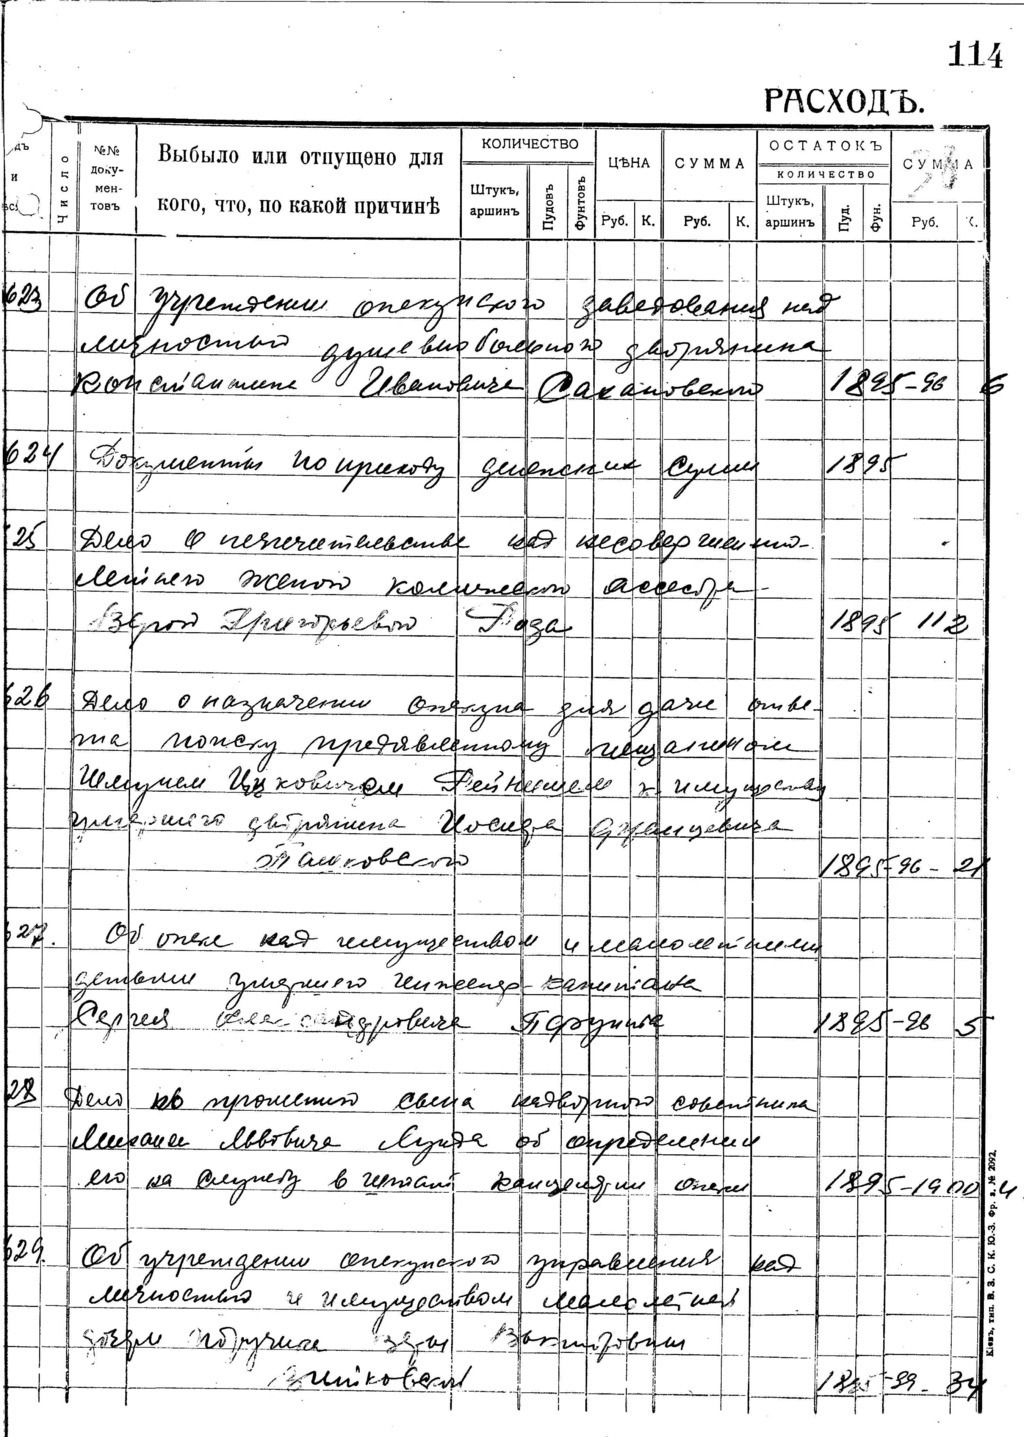 114
РАСХОДЪ.
дъ
и
Число
№№ докумен-
товъ
Выбыло или отпущено для
кого, что, по какой причинѣ
КОЛИЧЕСТВО
Штукъ, аршинъ
Пудовъ
Фунтовъ
ЦѢНА
Руб. К.
СУММА
Руб. К.
ОСТАТОКЪ
КОЛИЧЕСТВО
Штукъ, аршинъ
Пуд.
Фун.
СУММА
Руб. К.
623 Об учреждении опекунского заведования над
личностью душевнобольного дворянина
Константина Ивановича Сахановского 1895-96 6
624 Документы по приходу денежных сумм 1895
625 Дело о попечительстве над несовершенно-
летнего женою коллежского ассесора
Верою Григорьевою 1895 112
626 Дело о назначении опекуна для дачи отве-
та по иску предявленному мещанином
Ицковичем к имуществу
умершего дворянина Иосифа Францевича
1895-96 - 21
627. Об опеке над имуществом и малолетними
детьми умершего инженер-капитана
Сергея Александровича 1895-96 5
628 Дело по прошению сына надворного советника
Михаила Львовича об определении
его на службу в штат канцелярии опеки 1895-1900 4
629. Об учреждении опекунского управления над
личностью и имуществом малолетней
дочери поручика Веры
1895-99 - 34
Кіевъ, тип. В. З. С. К. Ю.-З. Фр. з. № 2092.